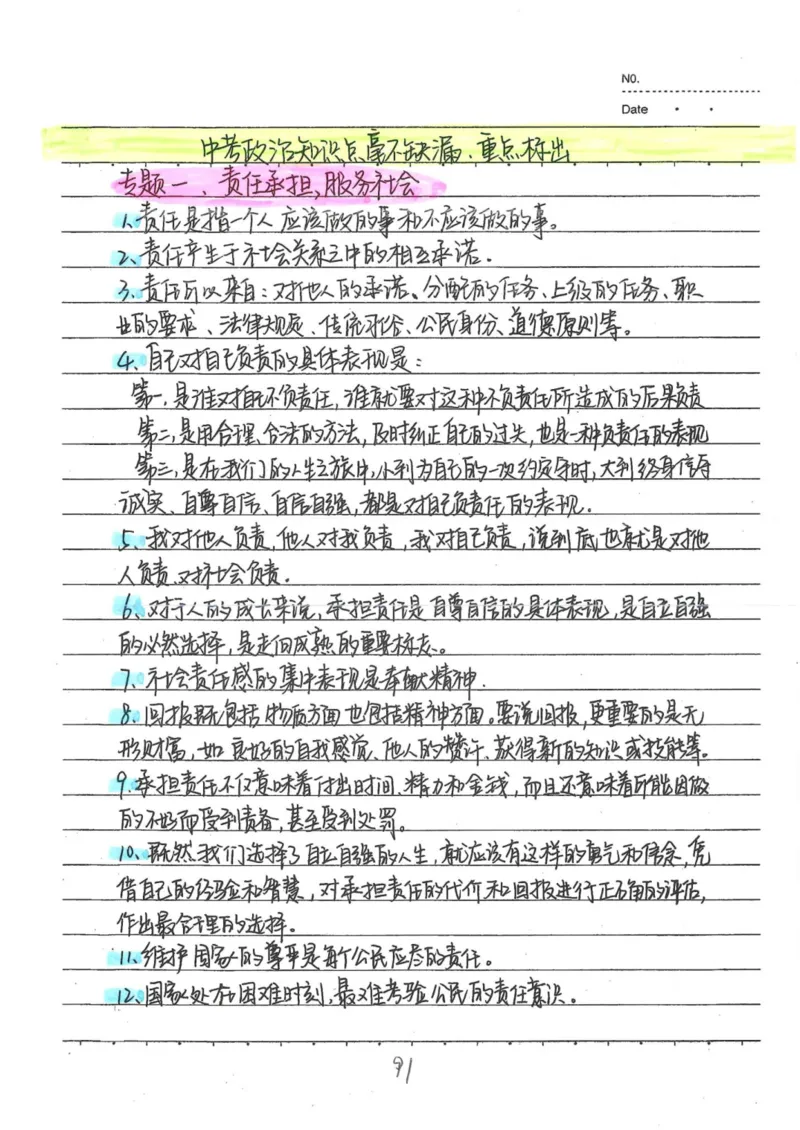 NO.
Date
中考政治知识点毫不缺漏、重点标出
专题一、责任承担,服务社会
1.责任是指一个人应该做的事和不应该做的事。
2、责任产生于社会关系之中的相互承诺.
3.责任可以来自:对他人的承诺。分配的任务、上级的任务、职
业的要求、法律规定、传统习俗、公民身份、道德原则等。
4、自己对自己负责的具体表现是:
第一,是谁对自己不负责任,谁就要对这种不负责任所造成的后果负责
第二,是用合理、合法的方法,及时纠正自己的过失,也是一种负责任的表现
第三,是在我们的人生之旅中,小到为自己的一次约定守时,大到终身信守
诚实、自尊自信、自信自强,都是对自己负责任的表现.
5、我对他人负责,他人对我负责,我对自己负责,说到底也就是对他
人负责.对社会负责.
6、对于人的成长来说,承担责任是自尊自信的具体表现,是自立自强
的必然选择,是走向成熟的重要标志。
7、社会责任感的集中表现是奉献精神.
8、回报既包括物质方面也包括精神方面。要说回报,更重要的是无
形财富,如良好的自我感觉、他人的赞许、获得新的知识或技能等。
9.承担责任不仅意味着付出时间、精力和金钱,而且还意味着可能因做
的不好而受到责备,甚至受到处罚。
10、既然我们选择了自立自强的人生,就应该有这样的勇气和信念,凭
借自己的经验和智慧,对承担责任的代价和回报进行正确的评估,
作出最合理的选择.
11、维护国家的尊严是每个公民应尽的责任。
12、国家处在困难时刻,最难考验公民的责任意识。
91